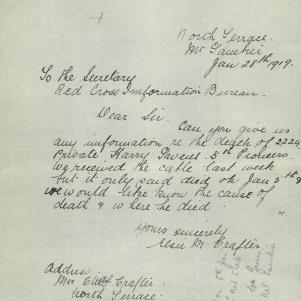 North Terrace
Mt Gambier
Jan 28th 1919.
To the Secretary
Red Cross Information Bureau.
Dear Sir.
Can you give us
any information re the death of 2224
Private Harry 5th Pioneers
We received the cable last week
but it only said died on Jan 5th &
we would like know the cause of
death & where he died
Yours sincerely
Elsie M. Crafter
Address
Mrs Crafter
North Terrace